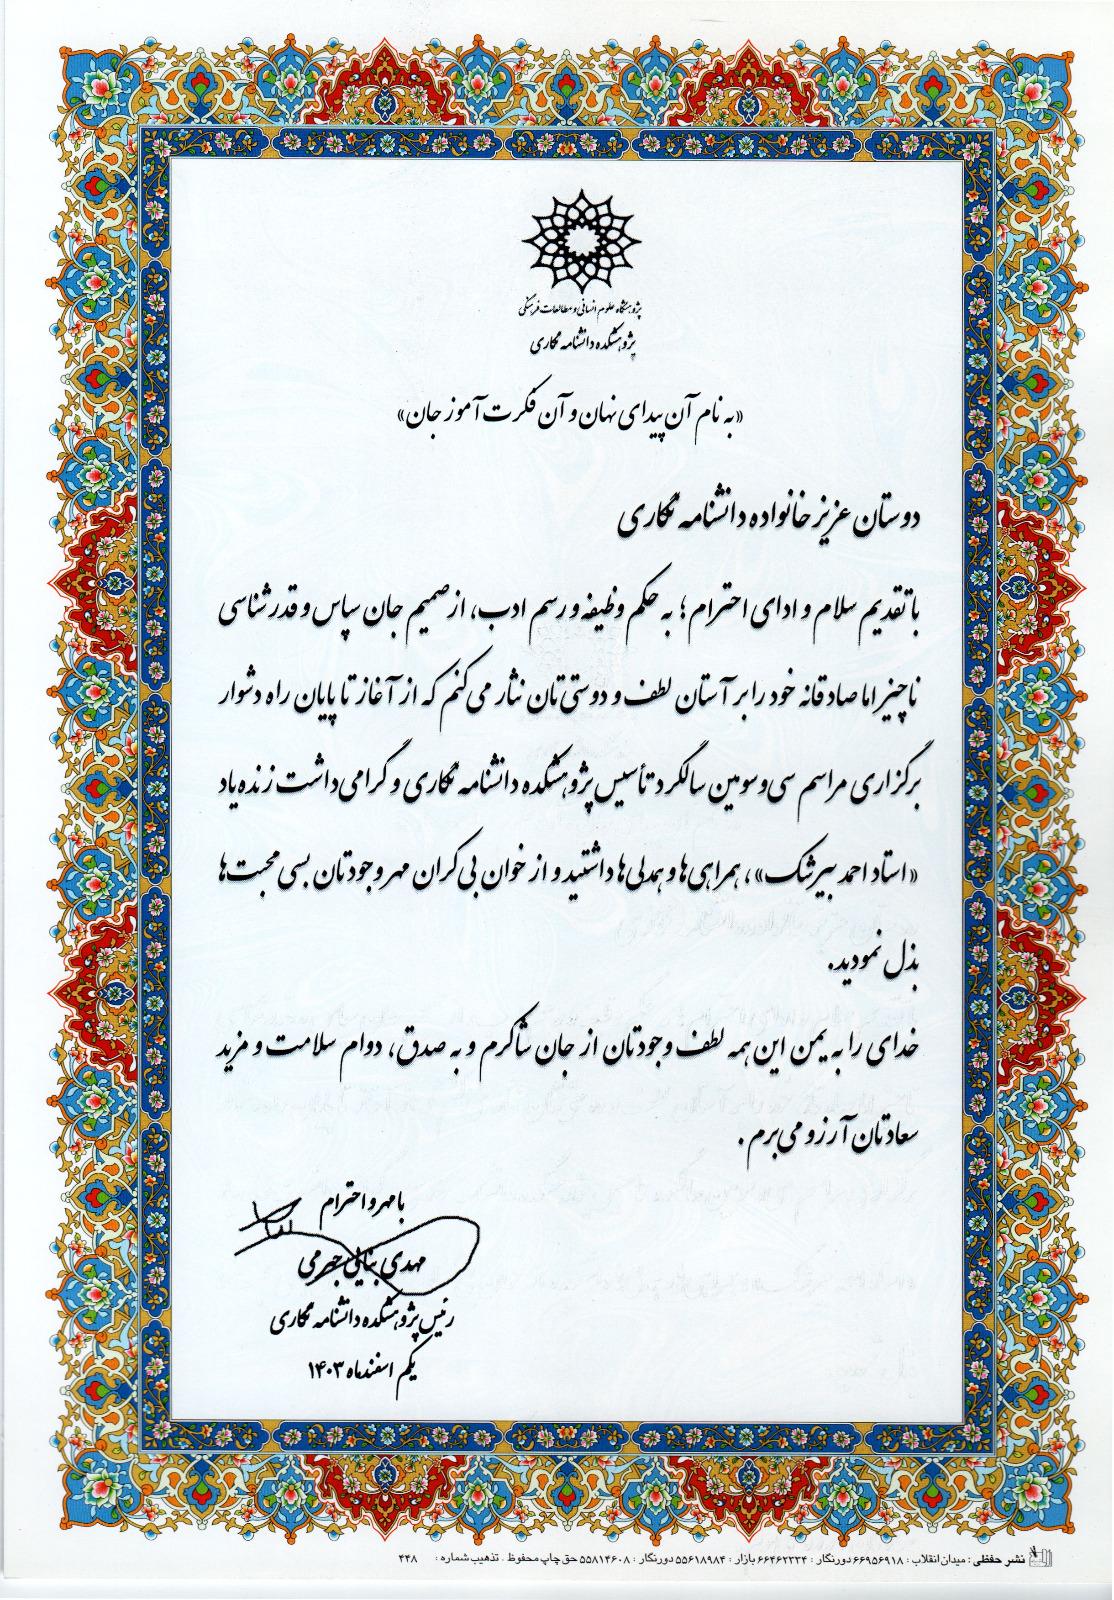 پژوهشگاه علوم انسانی و مطالعات فرهنگی
پژوهشکده دانشنامه نگاری
«به نام آن پیدای نهان و آن فکرت آموز جان»
دوستان عزیز خانواده دانشنامه نگاری
با تقدیم سلام و ادای احترام؛ به حکم وظیفه و رسم ادب، از صمیم جان سپاس و قدرشناسی
ناچیز اما صادقانه خود را بر آستان لطف و دوستی‌تان نثار می‌کنم که از آغاز تا پایان راه دشوار
برگزاری مراسم سی‌و سومین سالگرد تأسیس پژوهشکده دانشنامه نگاری و گرامی‌داشت زنده یاد
«استاد احمد بیرشک»، همراهی‌ها و همدلی‌ها داشتید و از خوان بی‌کران مهر وجودتان بسی محبت‌ها
بذل نمودید.
خدای را به یمن این همه لطف وجودتان از جان شاکرم و به صدق، دوام سلامت و مزید
سعادتتان آرزو می‌برم.
با مهر و احترام
مهدی بنائی جهرمی
رئیس پژوهشکده دانشنامه نگاری
یکم اسفندماه ۱۴۰۳
نشر حفظی: میدان انقلاب: ۶۶۹۵۶۹۱۸ دورنگار: ۶۶۴۶۲۳۳۴ بازار: ۵۵۶۱۸۹۸۴ دورنگار: ۵۵۸۱۴۶۰۸ حق چاپ محفوظ . تذهیب شماره: ۴۴۸